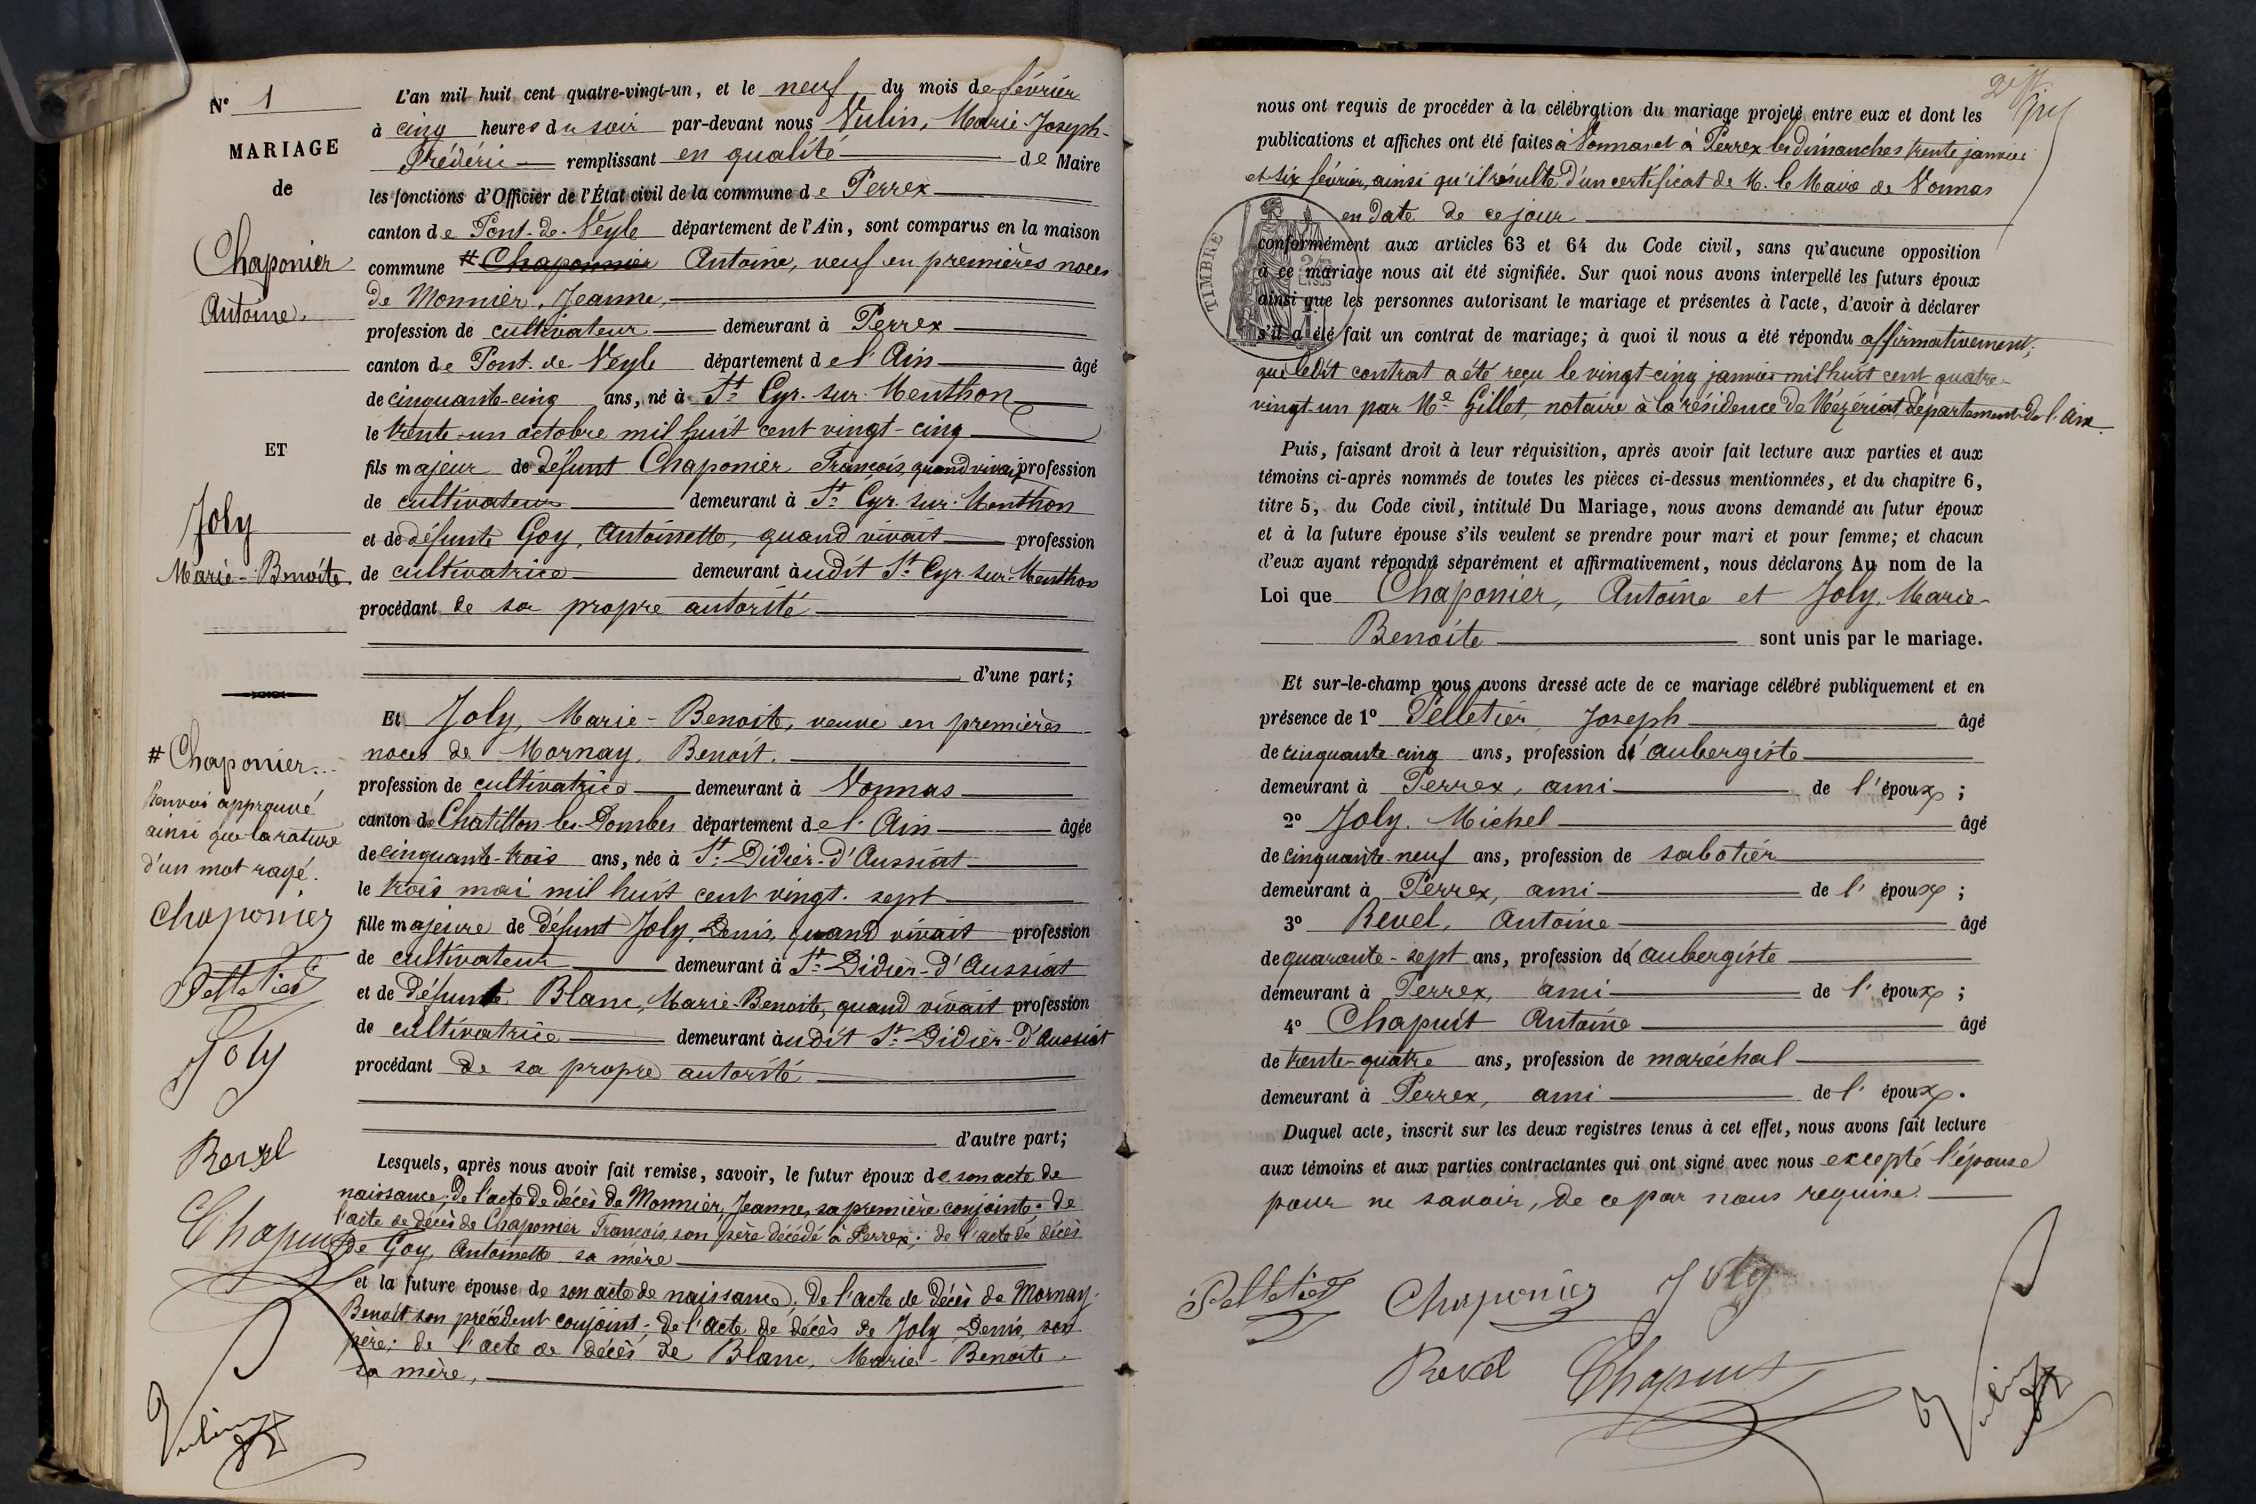 N° 1
MARIAGE
de
Chaponier
Antoine.
ET
Joly
Marie-Benoite
# Chaponier..
Renvoi approuvé
ainsi que la rature
d'un mot rayé.
Chaponier
Pelletier
Joly
Revel
Chapuit
Vulin
L'an mil huit cent quatre-vingt-un, et le neuf du mois de février
à cinq heures du soir par-devant nous Vulin, Marie-Joseph-
Frédéric remplissant en qualité de Maire
les fonctions d'Officier de l'État civil de la commune de Perrex
canton de Pont-de-Veyle département de l'Ain, sont comparus en la maison
commune # Chaponnier Antoine, veuf en premières noces
de Monnier, Jeanne,
profession de cultivateur demeurant à Perrex
canton de Pont-de-Veyle département de l'Ain âgé
de cinquante-cinq ans, né à St Cyr-sur-Menthon
le trente-un octobre mil huit cent vingt-cinq
fils majeur de défunt Chaponier François, quand vivait profession
de cultivateur demeurant à St Cyr-sur-Menthon
et de défunte Goy, Antoinette, quand vivait profession
de cultivatrice demeurant àudit St Cyr-sur-Menthon
procédant de sa propre autorité
d'une part;
Et Joly, Marie-Benoite, veuve en premières
noces de Mornay, Benoit.
profession de cultivatrice demeurant à Vonnas
canton de Chatillon-les-Dombes département de l'Ain âgée
de cinquante-trois ans, née à St Didier-d'Aussiat
le trois mai mil huit cent vingt-sept
fille majeure de défunt Joly, Denis, quand vivait profession
de cultivateur demeurant à St Didier-d'Aussiat
et de défunte Blanc, Marie-Benoite, quand vivait profession
de cultivatrice demeurant àudit St Didier-d'Aussiat
procédant de sa propre autorité
d'autre part;
Lesquels, après nous avoir fait remise, savoir, le futur époux de son acte de
naissance; de l'acte de décès de Monnier, Jeanne, sa première conjointe; de
l'acte de décès de Chaponier François, son père décédé à Perrex; de l'acte de décès
de Goy, Antoinette sa mère
et la future épouse de son acte de naissance; de l'acte de décès de Mornay
Benoit son précédent conjoint; de l'acte de décès de Joly, Denis, son
père; de l'acte de décès de Blanc, Marie-Benoite,
sa mère,
nous ont requis de procéder à la célébration du mariage projeté entre eux et dont les
publications et affiches ont été faites à Vonnas et à Perrex les dimanches trente janvier
et six février, ainsi qu'il résulte d'un certificat de M. le Maire de Vonnas
en date de ce jour
TIMBRE
conformément aux articles 63 et 64 du Code civil, sans qu'aucune opposition
à ce mariage nous ait été signifiée. Sur quoi nous avons interpellé les futurs époux
ainsi que les personnes autorisant le mariage et présentes à l'acte, d'avoir à déclarer
s'il a été fait un contrat de mariage; à quoi il nous a été répondu affirmativement;
que ledit contrat a été reçu le vingt-cinq janvier mil huit cent quatre-
vingt-un par Me Gillet, notaire à la résidence de Mézériat, département de l'Ain.
Puis, faisant droit à leur réquisition, après avoir fait lecture aux parties et aux
témoins ci-après nommés de toutes les pièces ci-dessus mentionnées, et du chapitre 6,
titre 5, du Code civil, intitulé Du Mariage, nous avons demandé au futur époux
et à la future épouse s'ils veulent se prendre pour mari et pour femme; et chacun
d'eux ayant répondu séparément et affirmativement, nous déclarons Au nom de la
Loi que Chaponier, Antoine et Joly, Marie-
Benoite sont unis par le mariage.
Et sur-le-champ nous avons dressé acte de ce mariage célébré publiquement et en
présence de 1° Pelletier, Joseph âgé
de cinquante-cinq ans, profession d'aubergiste
demeurant à Perrex, ami de l'époux;
2° Joly, Michel âgé
de cinquante-neuf ans, profession de sabotier
demeurant à Perrex, ami de l'époux;
3° Revel, Antoine âgé
de quarante-sept ans, profession d'aubergiste
demeurant à Perrex, ami de l'époux;
4° Chapuit Antoine âgé
de trente-quatre ans, profession de maréchal
demeurant à Perrex, ami de l'époux.
Duquel acte, inscrit sur les deux registres tenus à cet effet, nous avons fait lecture
aux témoins et aux parties contractantes qui ont signé avec nous excepté l'épouse
pour ne savoir, de ce par nous requise.
Pelletier Chaponier Joly
Revel Chapuit Vulin